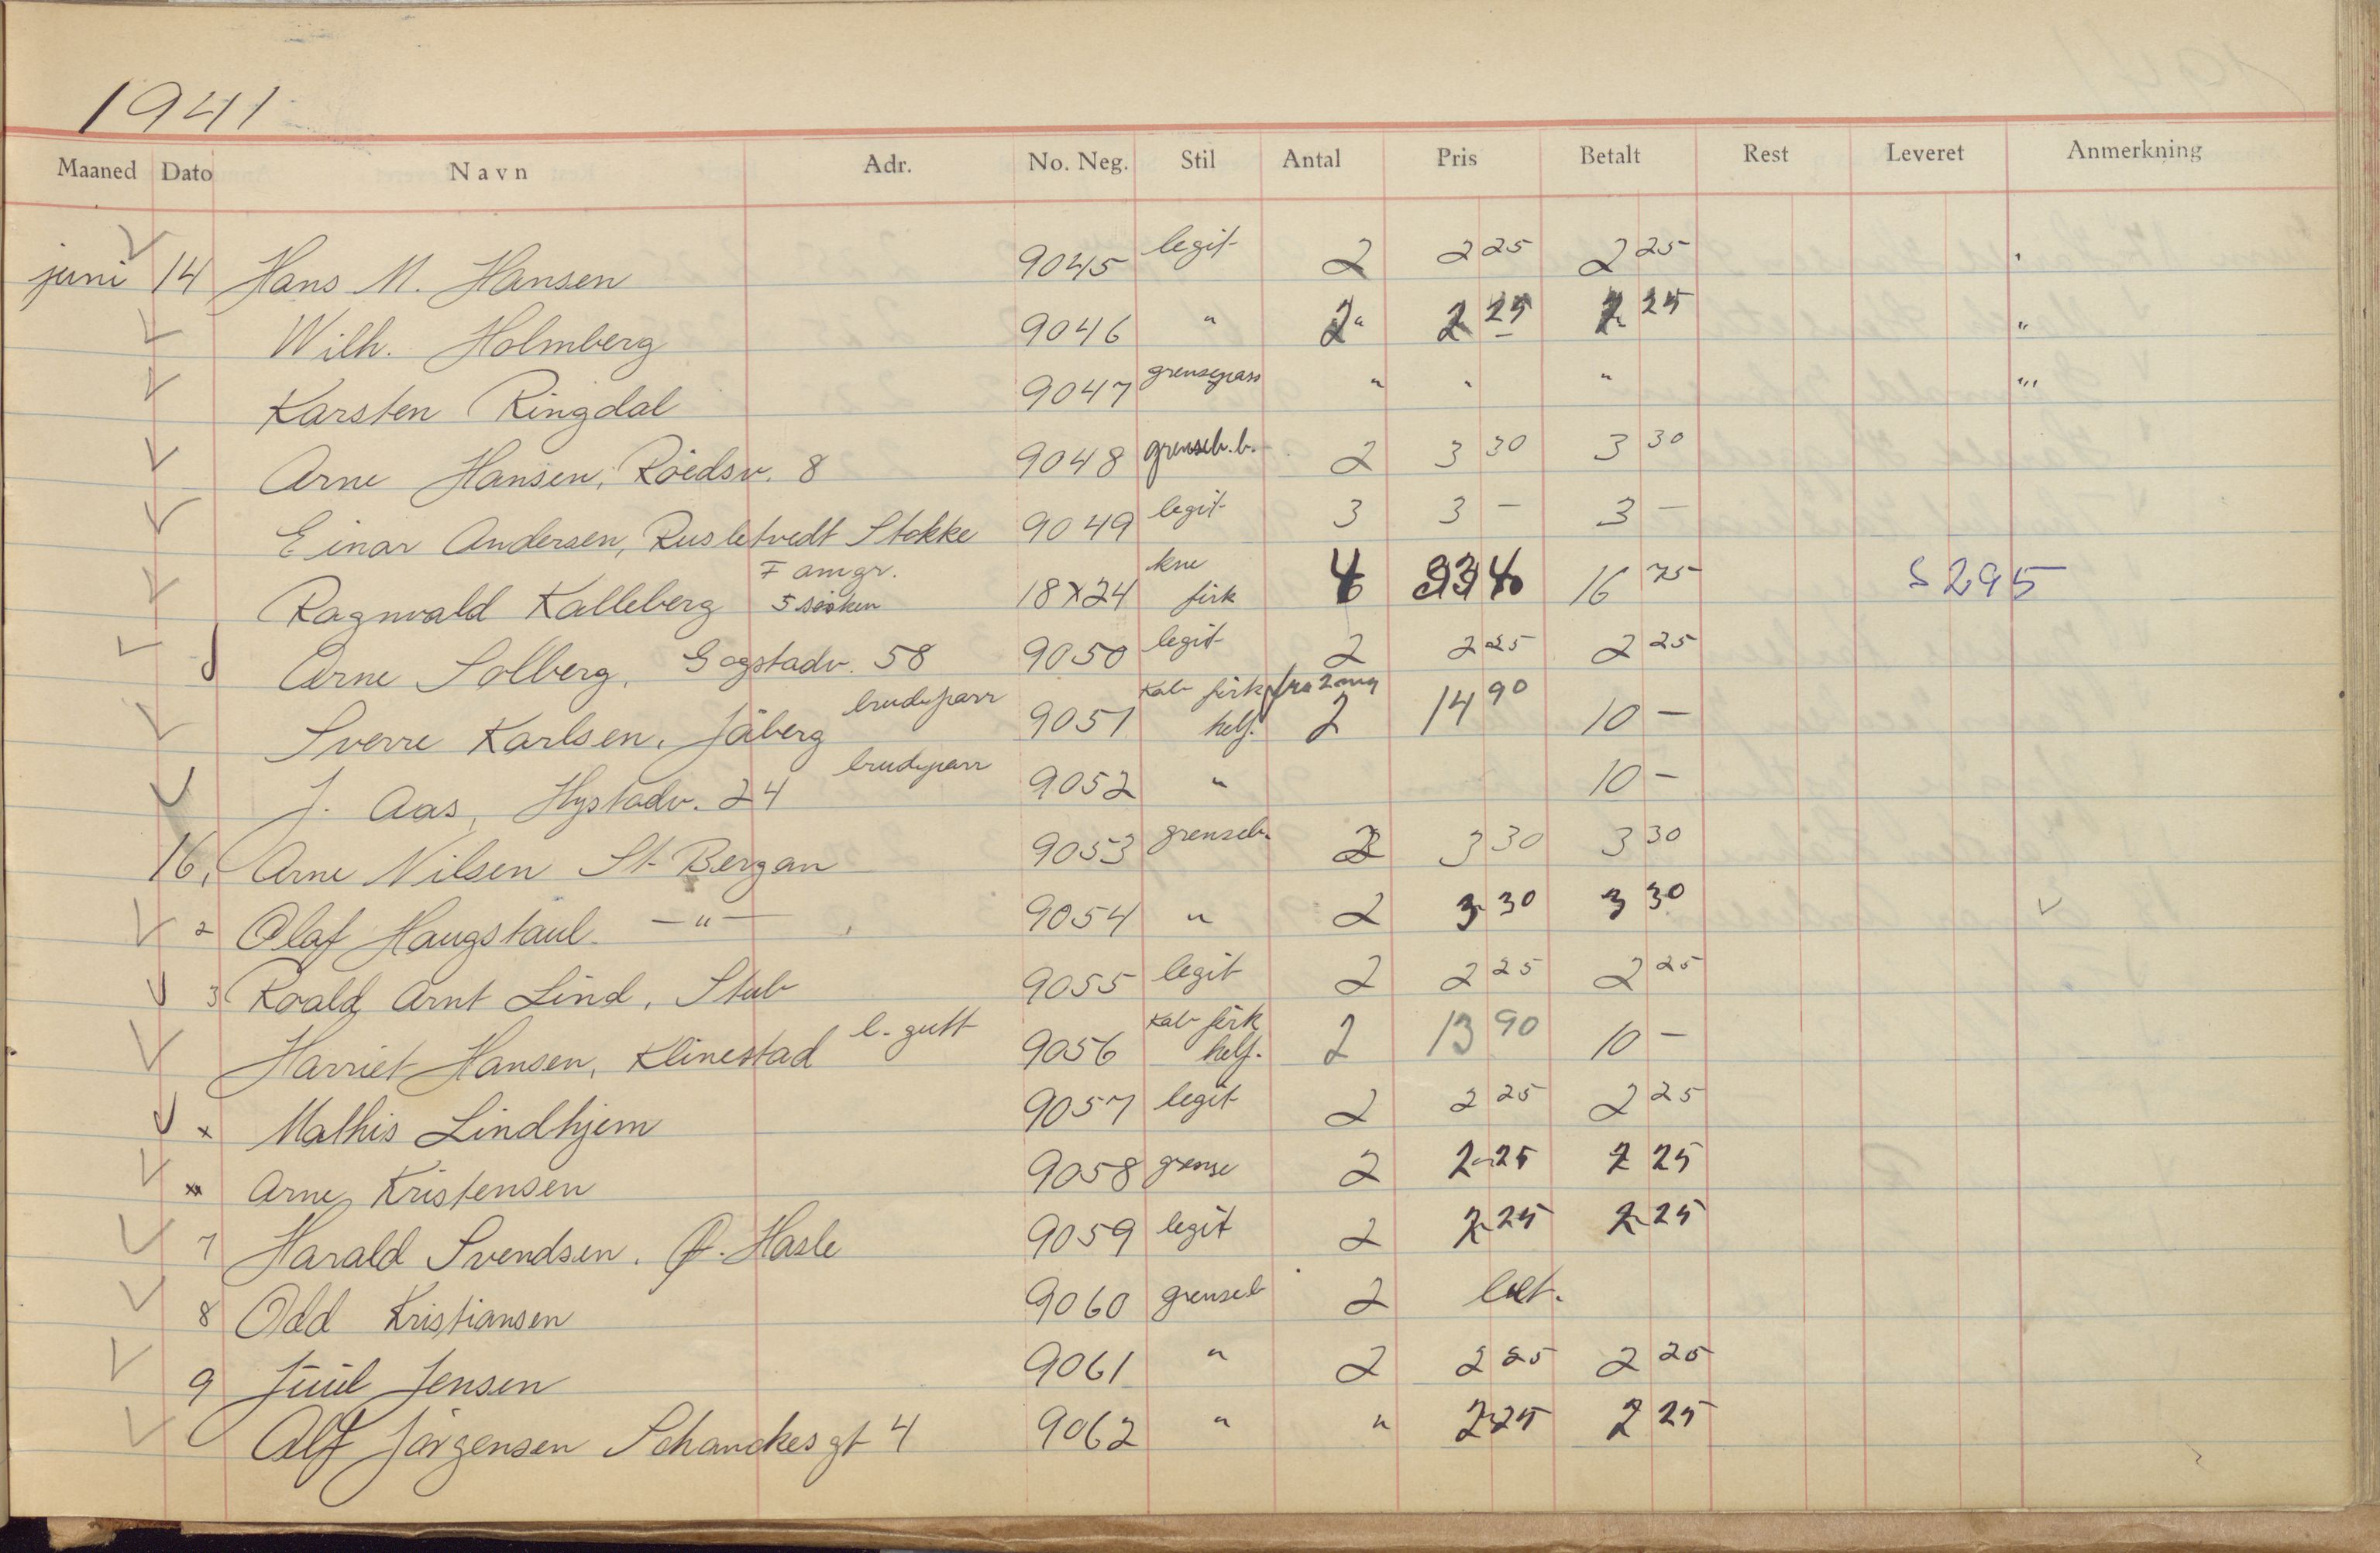 1941
Maaned Dato Navn Adr. No. Neg. Stil Antal Pris Betalt Rest Leveret Anmerkning
juni 14 Hans M. Hansen 9045 legit 2 2 25 2 25
Wilh. Holmberg 9046 " 2 " 2 25 2 25 "
Karsten Ringdal 9047 grensepass " " "
Arne Hansen, Röedsv. 8 9048 grenseb. b. 2 3 30 3 30
Einar Andersen, Rusletvedt Stokke 9049 legit 3 3 - 3 -
Famgr. kne
Ragnvald Kalleberg 5 sösken 18x24 firk 16 75 S 295
Arne Solberg, Gogstadv. 58 9050 legit 2 2 25 2 25
brudeparr Kab firk fra 2 neg
Sverre Karlsen, Jåberg 9051 helf. 2 14 90 10 -
J. Aas, Hystadv. 24 brudeparr 9052 " 10 -
16, Arne Nilsen St. Bergan 9053 grenseb. 2 3 30 3 30
2 Olaf Haugstaul. - " - 9054 " 2 3 30 3 30
3 Roald Arnt Lind, Stub 9055 legit 2 2 25 2 25
Kab firk
Harriet Hansen, Klinestad l. gutt 9056 helf. 2 13 90 10 -
x Mathis Lindhjem 9057 legit 2 2 25 2 25
x Arne Kristensen 9058 grense 2 2 25 2 25
7 Harald Svendsen. Ø. Hasle 9059 legit 2 2 25 2 25
8 Odd Kristiansen 9060 grenseb 2 bet.
9 Juul Jensen 9061 " 2 2 25 2 25
Alf Jörgensen Schanckes gt 4 9062 " " 2 25 2 25